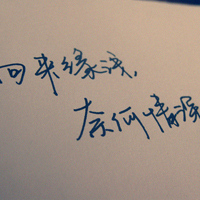 回来缘浅，
奈何情深